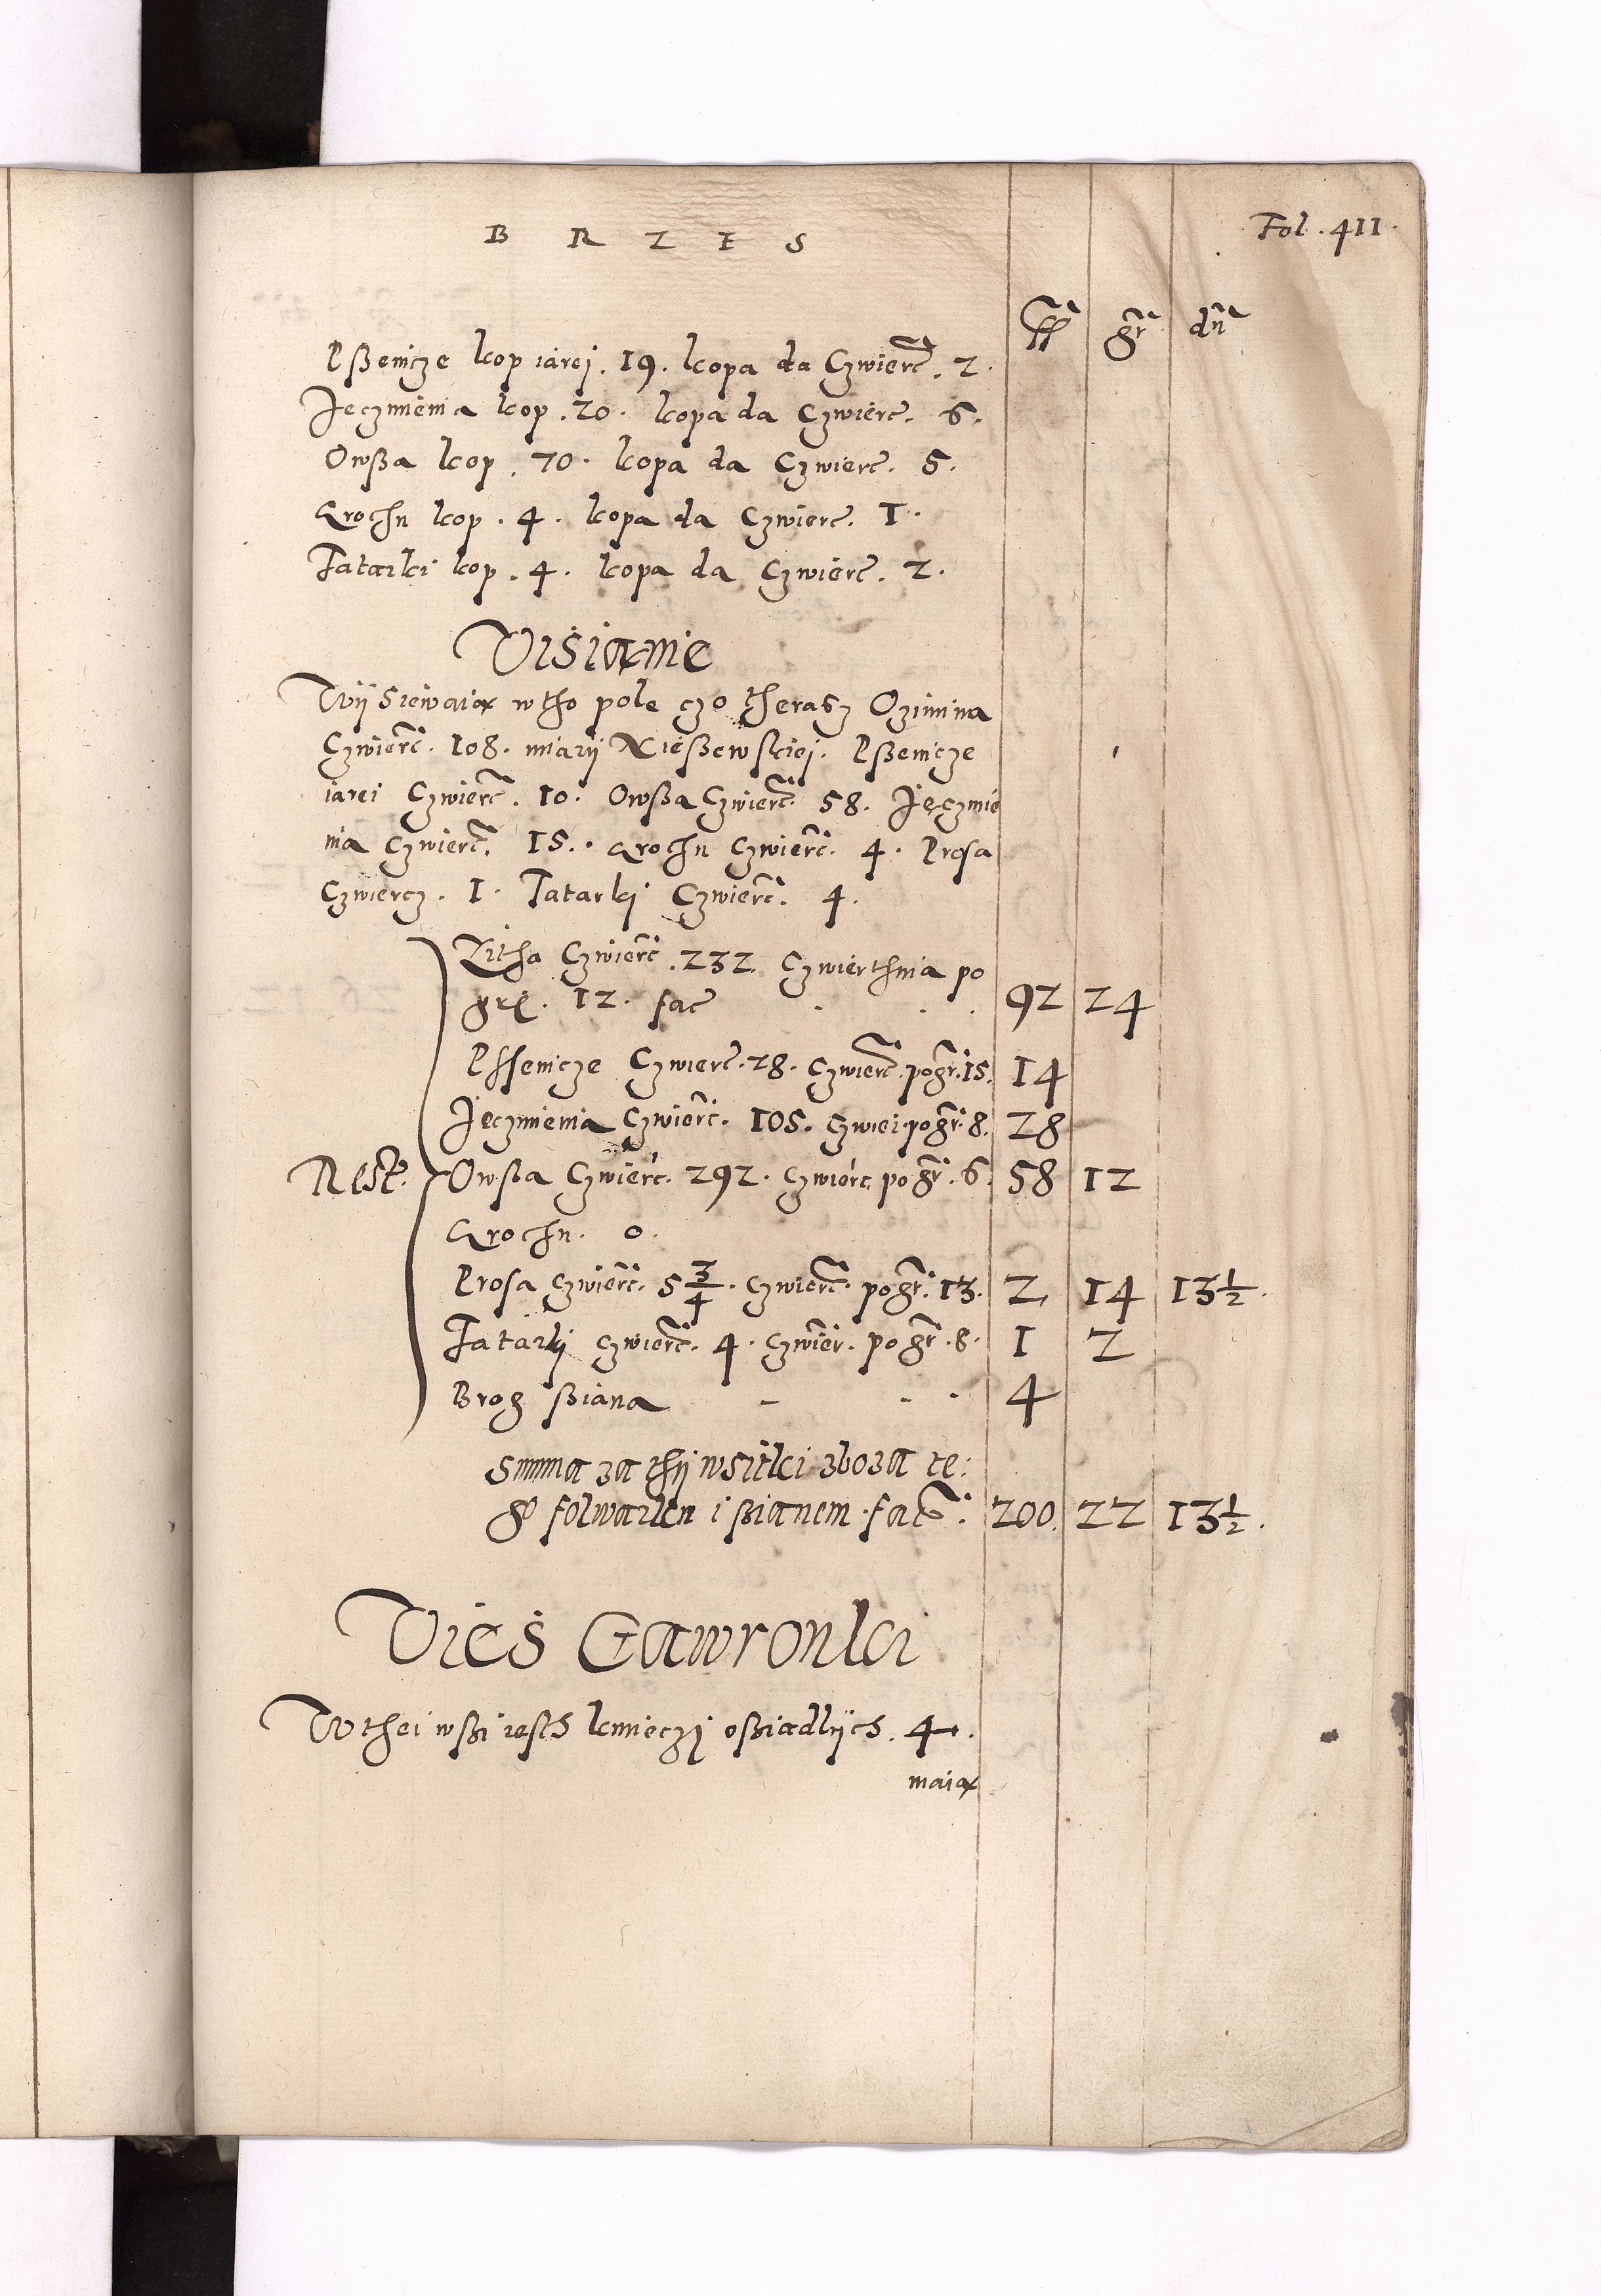 B R Z E S
Fol. 411.
ff gr dn
Pßenicze kop iarej. 19. kopa da Czwierc. 2.
Jęczmienia kop. 20. kopa da Czwierc. 6.
Owßa kop. 70. kopa da Czwierc. 5.
Grochu kop. 4. kopa da Czwierc. 1.
Tatarki kop. 4. kopa da Czwierc. 2.
Wisianie
Wÿsiewaią w tho pole czo therasz Ozimina
Czwierc. 108. miarÿ Kießewskiej. Pßenicze
iarei Czwierc. 10. Owßa Czwierc. 58. Jęczmie
nia Czwierc. 15. Grochu Czwierc. 4. Prosa
Czwiercz. 1. Tatarkj Czwierc. 4.
Rest.
Zitha Czwierc. 232. Czwierthnia po
gr. 12. fac 92 24
Pssenicze Czwierc. 28. Czwierc. po gr. 15. 14
Jęczmienia Czwierc. 105. Czwier. po gr. 8. 28
Owßa Czwierc. 292. Czwierc. po gr. 6. 58 12
Grochu. 0.
Prosa Czwierc. 5 3/4. Czwierc. po gr. 13. 2 14 13 1/2.
Tatarkj Czwierc. 4. Czwier. po gr. 8. 1 2
Brog ßiana 4
Summa za thÿ wsitki zboza te:
go folwarku i ßianem. fac. 200. 22 13 1/2.
Vieś Gawronki
W thei wßi iesth kmieczj oßiadlÿch. 4.
maią